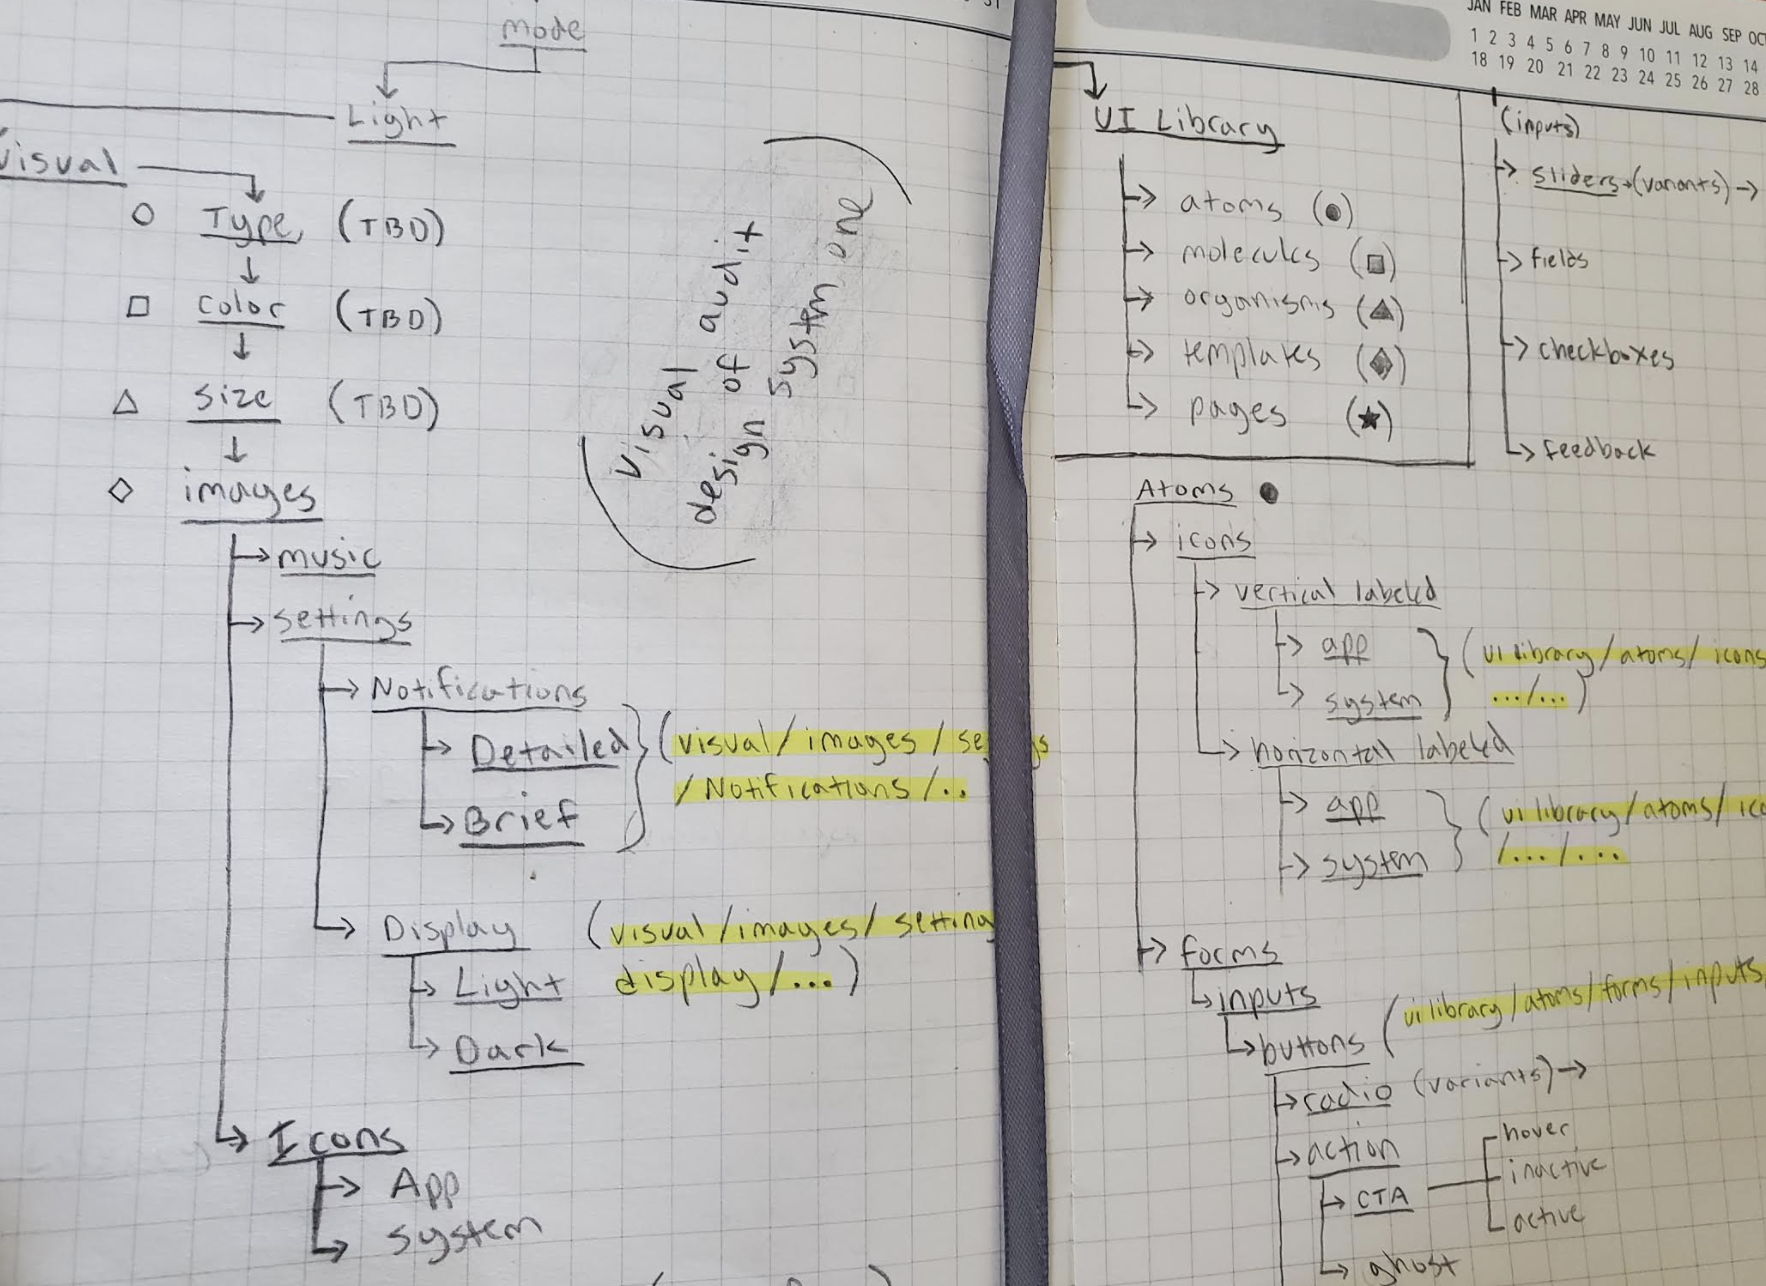 mode
Light
Visual
Type (TBD)
color (TBD)
size (TBD)
images
music
settings
Notifications
Detailed
Brief
(visual/images/se s
/Notifications/..
Display (visual/images/setting
Light display/...)
Dark
Icons
App
system
visual
design of audit
system one
JAN FEB MAR APR MAY JUN JUL AUG SEP OCT
1 2 3 4 5 6 7 8 9 10 11 12 13 14
18 19 20 21 22 23 24 25 26 27 28
UI Library
atoms
molecules
organisms
templates
pages
(inputs)
sliders (variants)
fields
checkboxes
feedback
Atoms
icons
vertical labeled
app (ui library/atoms/icons
system .../...)
horizontal labeled
app (ui library/atoms/ico
system /.../...
forms
inputs
buttons (ui library/atoms/forms/inputs
radio (variants)
action
CTA
hover
inactive
active
ghost